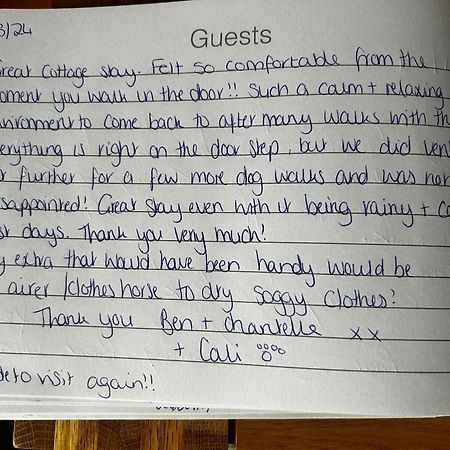 3/24
Guests
reat Cottage stay. Felt so comfortable from the
oment you walk in the door!! Such a calm + relaxing
nvironment to come back to after many walks with th
erything is right on the door step, but we did ven
further for a few more dog walks and was not
sappointed! Great stay even with it being rainy + co
st days. Thank you very much!
y extra that would have been handy would be
airer / clothes horse to dry soggy clothes!
Thank you Ben + Chantelle x x
+ Cali
to visit again!!